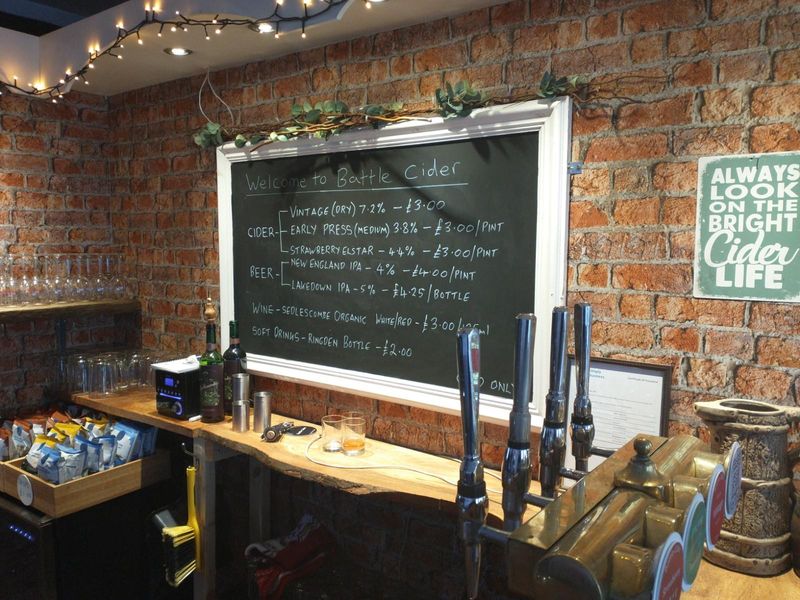 Welcome to Battle Cider
CIDER
VINTAGE (DRY) 7.2% - £3.00
EARLY PRESS (MEDIUM) 3.8% - £3.00/PINT
STRAWBERRY ELSTAR - 4.4% - £3.00/PINT
BEER
NEW ENGLAND IPA - 4% - £4.00/PINT
LAKEDOWN IPA - 5% - £4.25/BOTTLE
WINE - SEDLESCOMBE ORGANIC WHITE/RED - £3.00/125ml
SOFT DRINKS - RINGDEN BOTTLE - £2.00
ONLY
ALWAYS
LOOK
ON THE
BRIGHT
Cider
LIFE